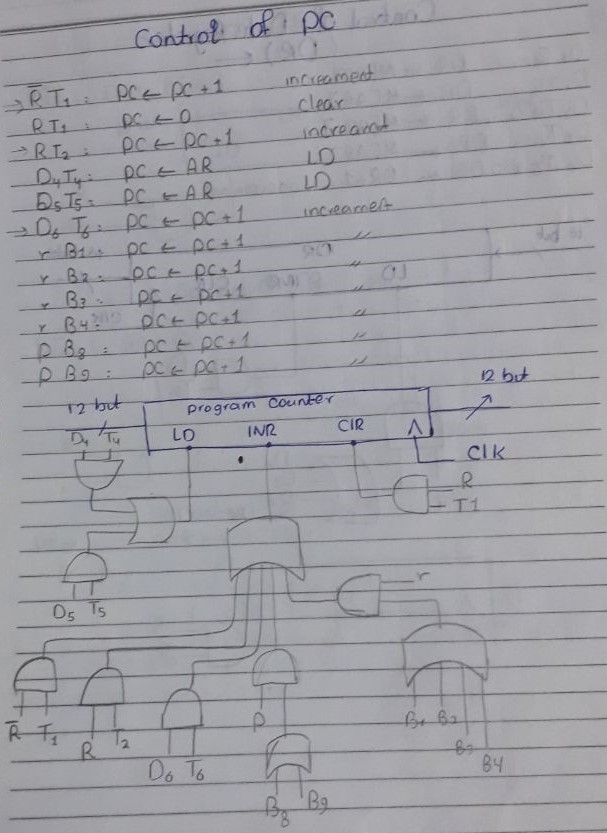 Control of PC
→ R̅ T₁ : PC ← PC+1 increament
RT₁ : PC ← 0 clear
→ RT₂ : PC ← PC+1 increamnt
D₄T₄ : PC ← AR LD
D₅T₅ : PC ← AR LD
→ D₆ T₆ : PC ← PC+1 increament
r B₁ : PC ← PC+1 〃
r B₂ : PC ← PC+1 〃
r B₃ : PC ← PC+1 〃
r B₄ : PC ← PC+1 〃
P B₈ : PC ← PC+1 〃
P B₉ : PC ← PC+1 〃
12 but program counter 12 but
D₄ T₄ LD INR CIR
CIK
R
T1
D₅ T₅
r
R̅ T₁ R T₂ P B₁ B₂
D₆ T₆ B₃ B4
B₈ B₉